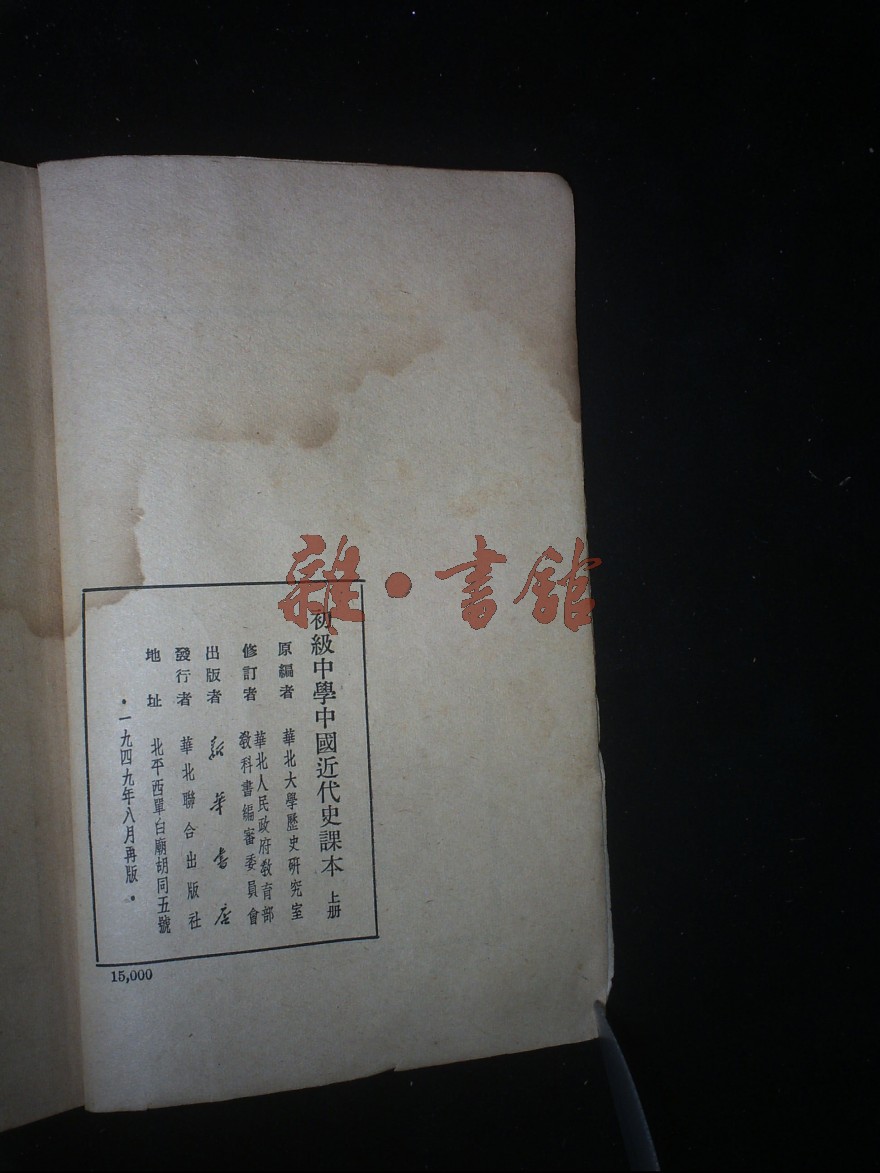 雜·書館
初級中學中國近代史課本 上册
原編者 華北大學歷史研究室
修訂者 華北人民政府教育部
教科書編審委員會
出版者 新華書店
發行者 華北聯合出版社
地址 北平西單白廟胡同五號
·一九四九年八月再版·
15,000